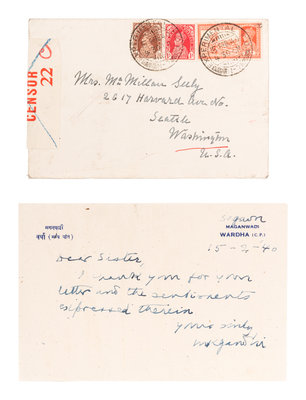 CENSOR
22
Mrs. McMillan Seely
2617 Harvard Ave No.
Seattle
Washington
U.S.A.
मगनवाडी
वर्धा (मध्य प्रांत)
Segaon
MAGANWADI
WARDHA (C.P.)
15-2-40
Dear Sister,
I thank you for your
letter and the sentiments
expressed therein
yours sinly
mkgandhi